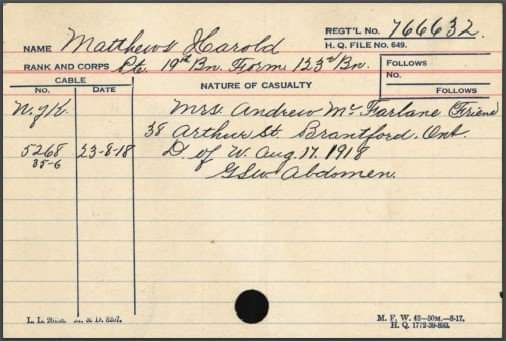 NAME Matthews Harold
REGT'L NO. 766632.
H. Q. FILE NO. 649.
RANK AND CORPS Pte. 19th Bn. Form. 123rd Bn.
FOLLOWS
NO.
FOLLOWS
CABLE
NO. DATE
NATURE OF CASUALTY
N.J.K. Mrs. Andrew Mc Farlane (Friend)
38 Arthur St. Brantford. Ont.
5268 23-8-18 D. of W. Aug 17. 1918
35-6 G.S.W. Abdomen.
M. F. W. 42—50M.—8-17.
H. Q. 1772-39-893.